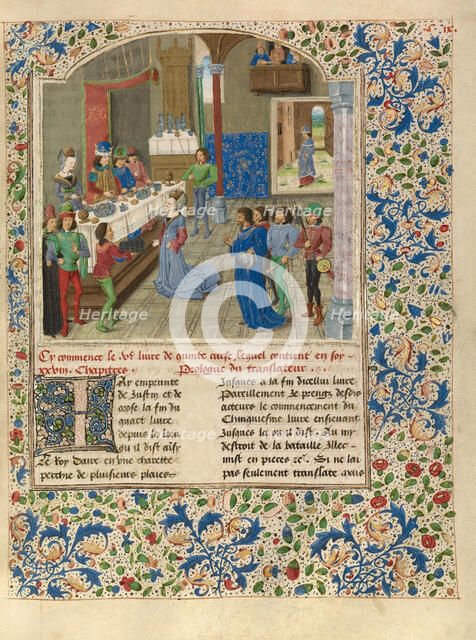 Cy commence le Ve livre de quinte curse, lequel contient en soy
xxviii. Chapitres. Prologue du translateur.
ay emprunte
de Justin et de
la fin du
quart livre
depuis la
ou il dist
le Roy daire en une charette
perchie de plusieurs plaies
Jusques a la fin dicellui livre
Pareillement Je prengz desdis
acteurs le commencement du
Chinquiesme livre ensieuant
Jusques la ou il dist. Au my
destroit de la bataille. Illec
mist en pieces &c. Si ne lai
pas seulement translate mais
Heritage
Heritage
Heritage
Heritage
Heritage
Heritage